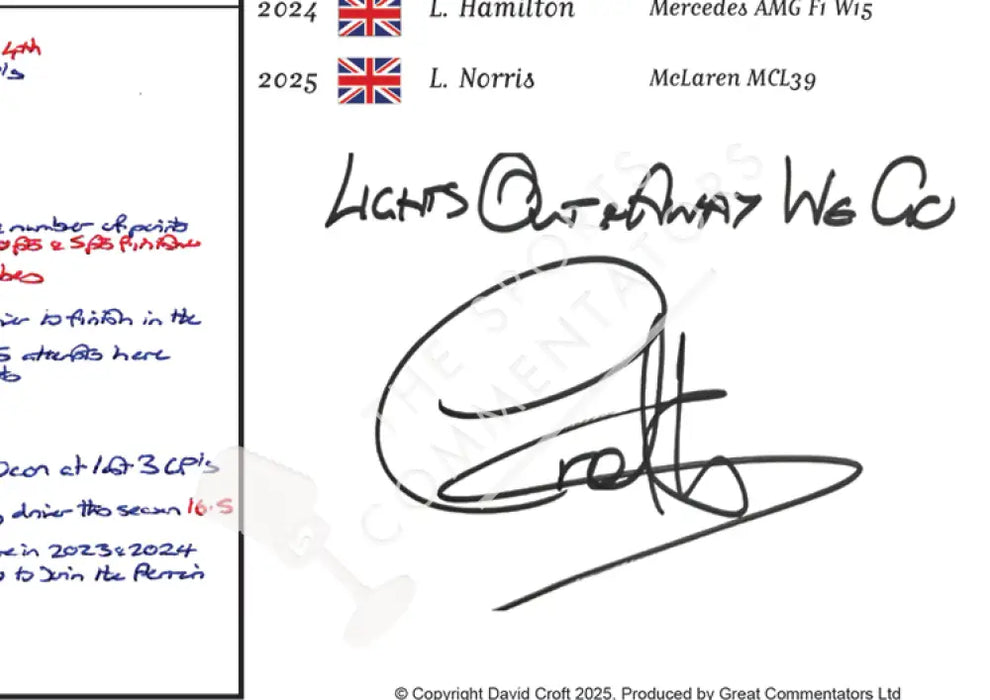 2024 L. Hamilton Mercedes AMG F1 W15
2025 L. Norris McLaren MCL39
LIGHTS OUT & AWAY WE GO
Croft
THE SPORTS
COMMENTATORS
4th
number of points
& 5 finishes
to finish in the
attempts here
at last 3 GP's
driver this season 16.5
in 2023 & 2024
to join the
© Copyright David Croft 2025, Produced by Great Commentators Ltd